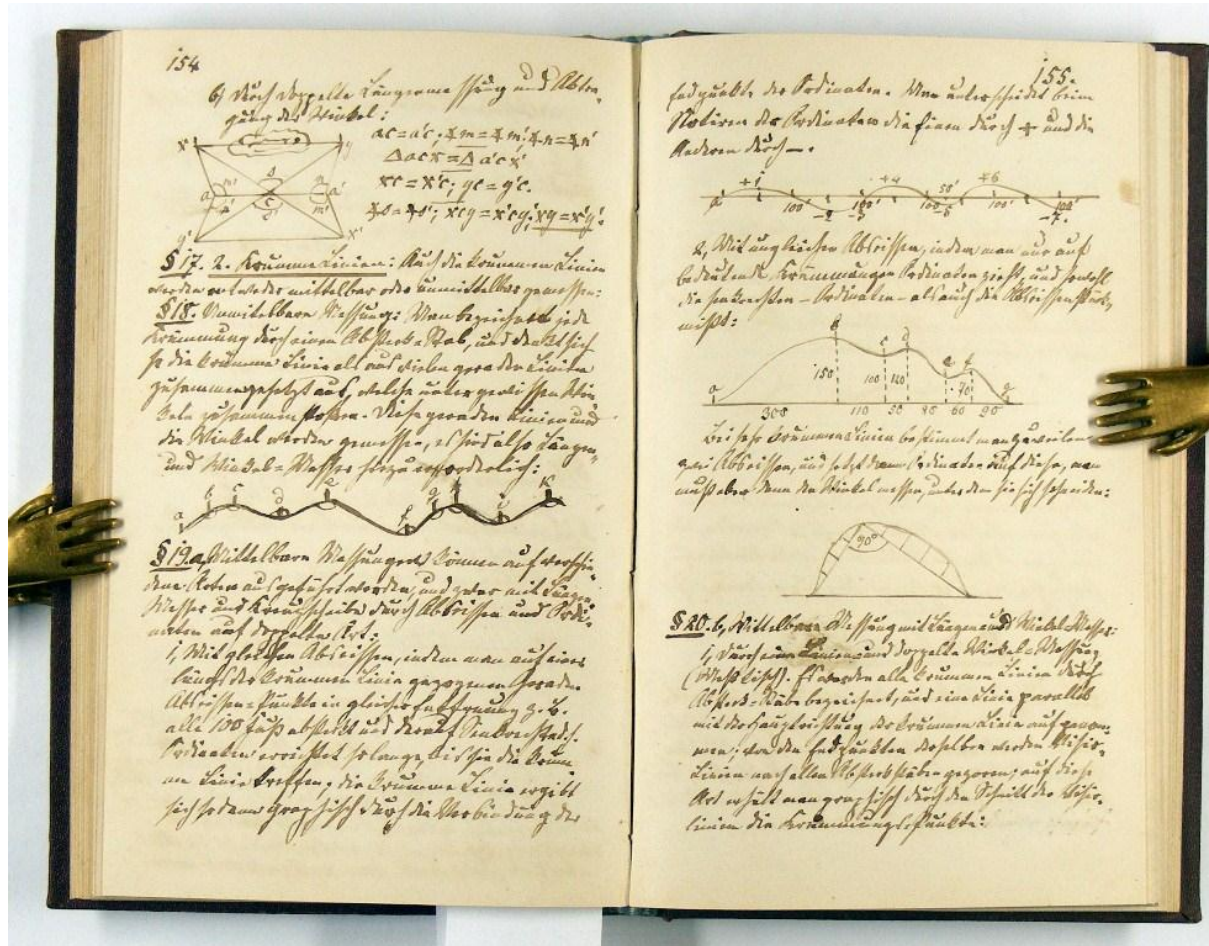 154
b) Durch doppelte Längenmessung und Abtra-
gung des Winkel:
ac = a'c; ∡m = ∡m'; ∡n = ∡n'
Δacx = Δa'cx'
xc = x'c; yc = y'c.
∡o = ∡o'; xcy = x'cy'; xy = x'y'.
§ 17. 2. Krumme Linien: Auch die krummen Linien
werden entweder mittelbar oder unmittelbar gemessen:
§ 18. Unmittelbare Messung: Man bezeichnet jede
Krümmung durch einen Absteck-Stab, und denkt sich
so die krumme Linie als aus vielen geraden Linien
zusammengesetzt aus, welche unter gewissen Win-
keln zusammenstoßen. Diese geraden Linien und
die Winkel werden gemessen, es sind also Längen-
und Winkel-Messer hiezu erforderlich:
a b c d e f g h i k
§ 19. a, Mittelbare Messungen können auf verschie-
dene Arten ausgeführt werden, und zwar mit Längen-
Messer und Kreuzscheibe durch Abscissen und Ordi-
naten auf doppelte Art:
1, Mit gleichen Abscissen, indem man auf einer
längs der krummen Linie gezogenen Geraden
Abscissen-Punkte in gleicher Entfernung z. B.
alle 100 Fuß absteckt und darauf Senkrechte d. h.
Ordinaten errichtet so lange, bis sie die krum-
me Linie treffen; die krumme Linie ergibt
sich sodann graphisch durch die Verbindung der
155.
Endpunkte der Ordinaten. Man unterscheidet beim
Notiren der Ordinaten die Einen durch + und die
Anderen durch –.
100' 100' 100' 50' 100' 100'
2, Mit ungleichen Abscissen, indem man nur auf
bedeutende Krümmungen Ordinaten zieht, und sowohl
die senkrechten – Ordinaten – als auch die Abscissenstücke
mißt:
a b c d e f g
150 100 120 70
300 110 50 80 60 90
Bei sehr krummen Linien bestimmt man zuweilen
zwei Abscissen, und setzt dann Ordinaten auf diese, man
muß aber dann den Winkel messen, unter dem sie sich schneiden:
90°
§ 20. b, Mittelbare Messung mit Längen und Winkel-Messer:
1, Durch eine Linien und doppelte Winkel-Messung
(Meßtisch). Es werden alle krummen Linien durch
Absteck-Stäbe bezeichnet, und eine Linie parallel
mit der Hauptrichtung der krummen Linie aufgenom-
men; von den Endpunkten derselben werden Visir-
Linien nach allen Absteckstäben gezogen; auf diese
Art erhält man graphisch durch den Schnitt der Visir-
linien die Krümmungs-Punkte: